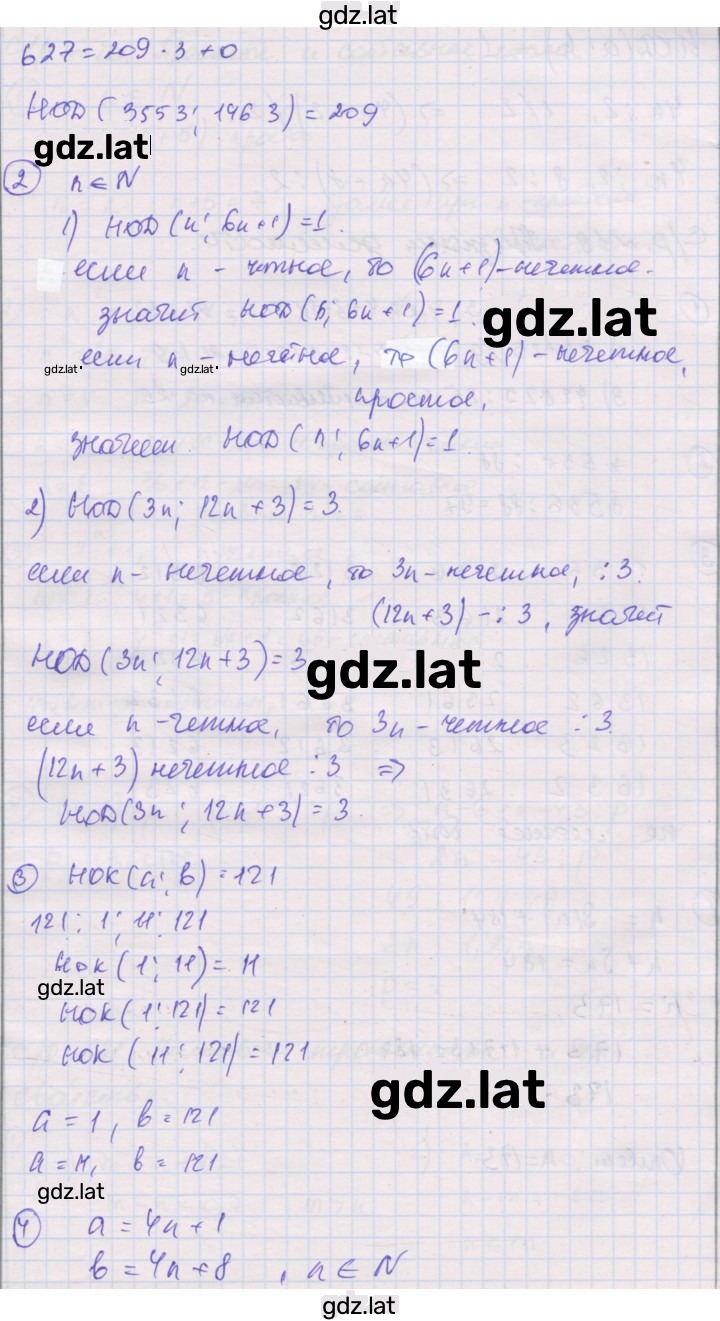 gdz.lat
627 = 209 · 3 + 0
НОД (3553; 1463) = 209
gdz.lat
② n ∈ N
1) НОД (n; 6n+1) = 1.
если n - четное, то (6n+1) - нечетное.
значит НОД (n; 6n+1) = 1.
gdz.lat
если n - нечетное, то (6n+1) - нечетное,
gdz.lat
gdz.lat
простое,
значит НОД (n; 6n+1) = 1.
2) НОД (3n; 12n + 3) = 3.
если n - нечетное, то 3n - нечетное, ⋮ 3.
(12n+3) - ⋮ 3, значит
НОД (3n; 12n+3) = 3
gdz.lat
если n - четное, то 3n - четное ⋮ 3.
(12n+3) нечетное ⋮ 3 ⇒
НОД (3n; 12n+3) = 3.
③ НОК (a; b) = 121
121: 1; 11; 121
НОК (1; 11) = 11
gdz.lat
НОК (1; 121) = 121
НОК (11; 121) = 121
gdz.lat
a = 1, b = 121
a = 11, b = 121
gdz.lat
④ a = 4n + 1
b = 4n + 8, n ∈ N
gdz.lat